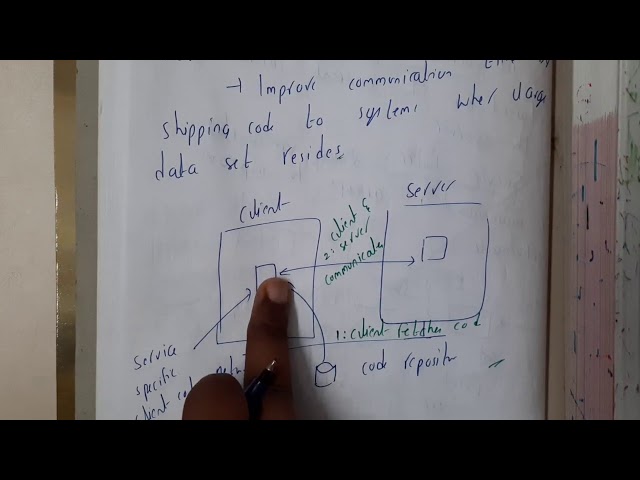 → Improve communication
shipping code to systems wher large
data set resides
client
server
2: client &
server
communicates
1: client fetches code
service
specific
client code
code repositor